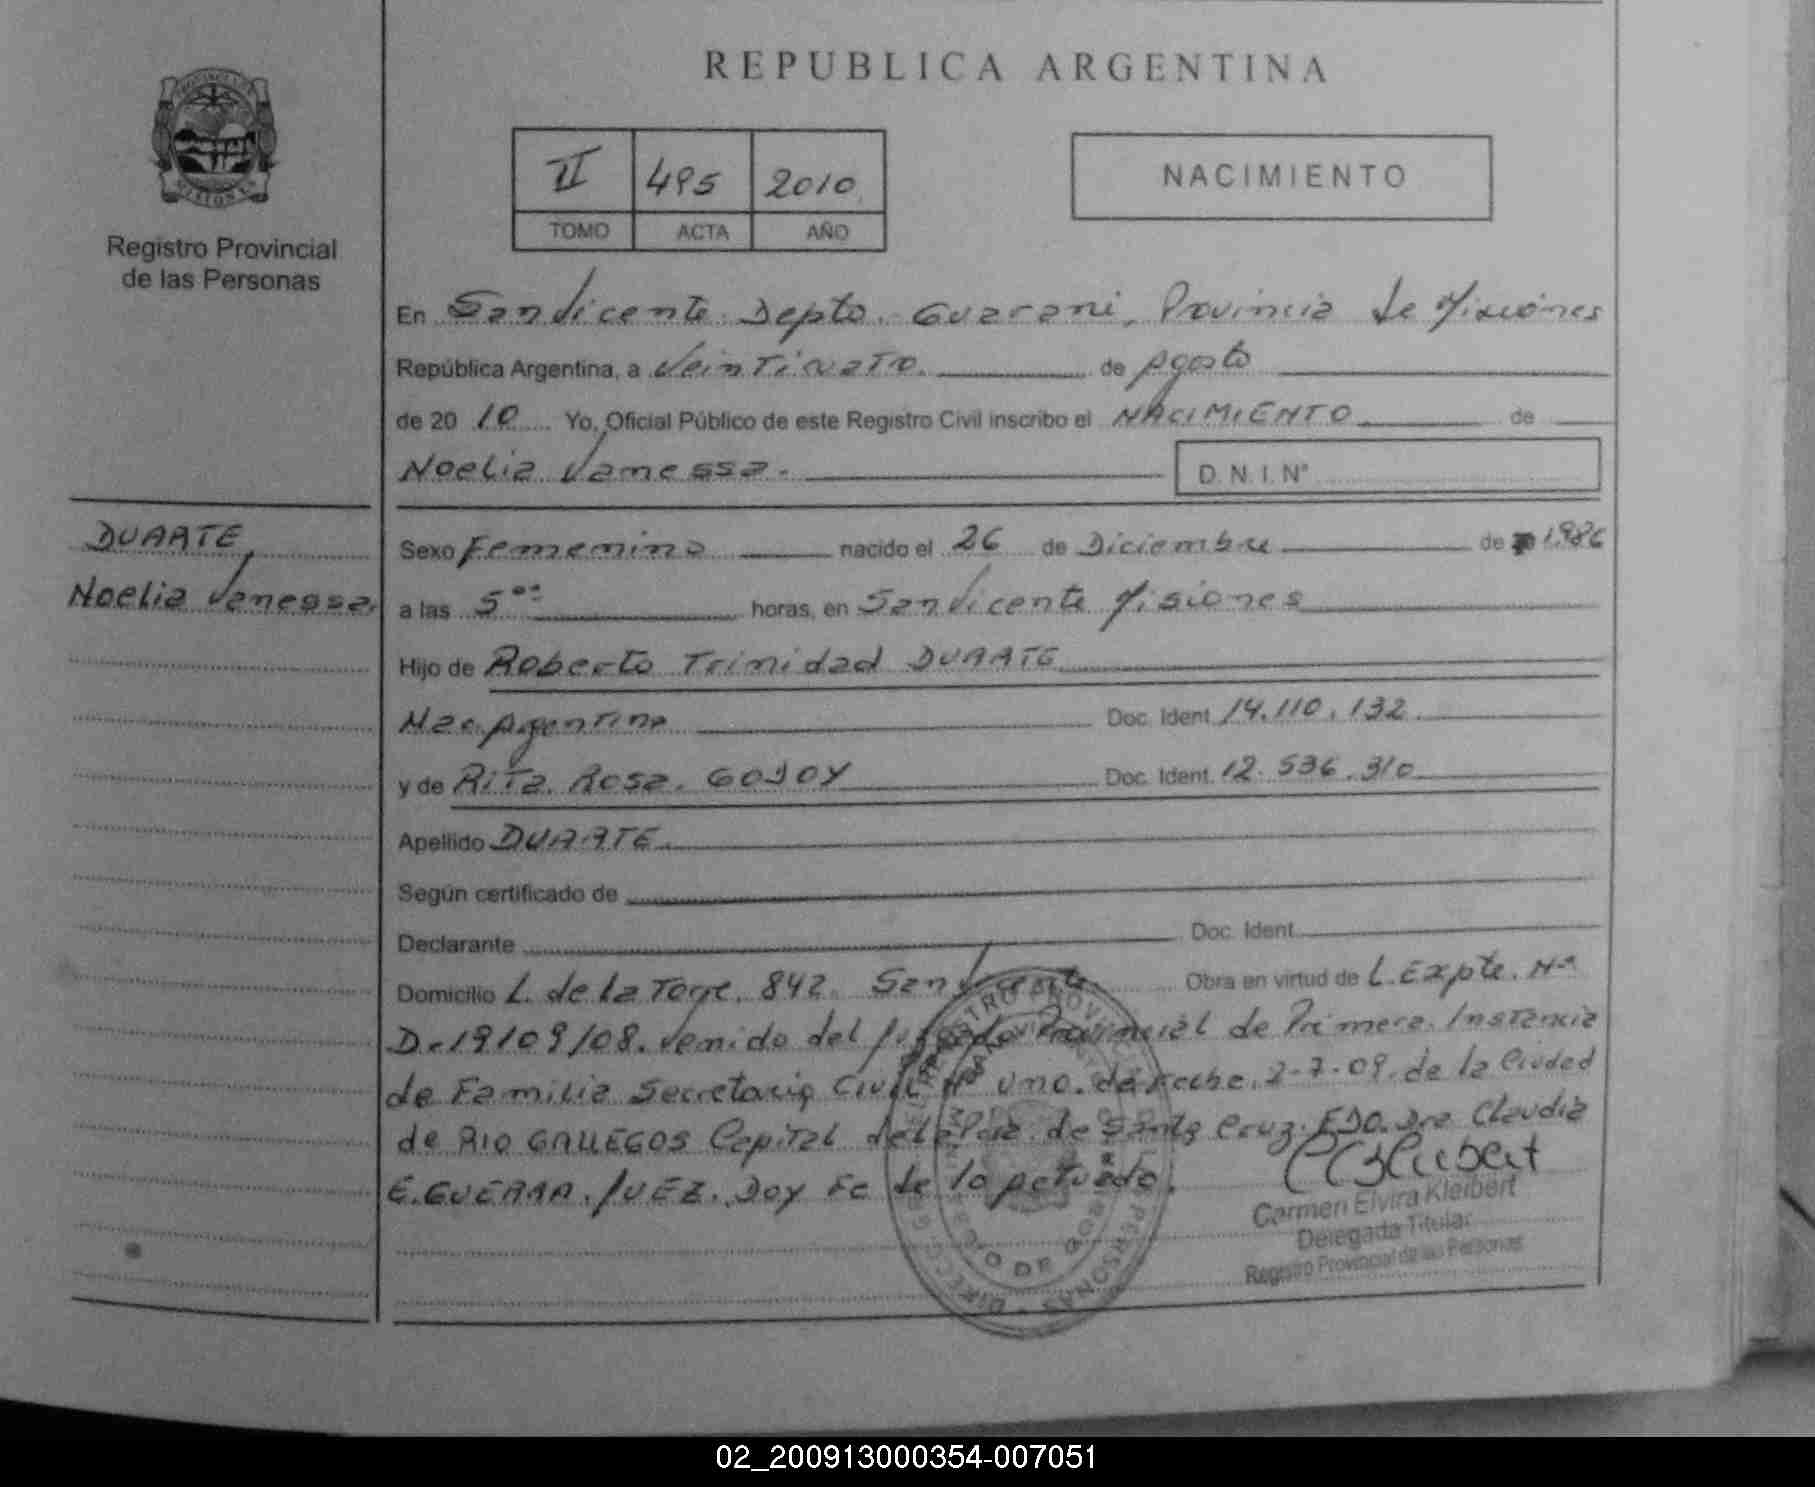 REPUBLICA ARGENTINA
Registro Provincial
de las Personas
II 495 2010
TOMO ACTA AÑO
NACIMIENTO
En San Vicente Depto. Guarani, Provincia de Misiones
República Argentina, a Veinticuatro de Agosto
de 20 10 Yo, Oficial Público de este Registro Civil inscribo el NACIMIENTO de
Noelia Vanessa. D.N.I. Nº
DUARTE,
Noelia Vanessa.
Sexo Femenino nacido el 26 de Diciembre de 1986
a las 5 horas, en San Vicente Misiones
Hijo de Roberto Trinidad DUARTE
Nac. Argentina Doc. Ident. 14.110.132
y de Rita Rosa. GODOY Doc. Ident. 12.536.310
Apellido DUARTE.
Según certificado de
Declarante Doc. Ident.
Domicilio L. de la Torre. 842. San Vicente. Obra en virtud de L. Expte. Nº
D-19109/08. Venido del Juzgado Provincial de Primera Instancia
de Familia Secretaria Civil Nº uno. de fecha. 2-7-09. de la Ciudad
de RIO GALLEGOS Capital de la Pcia. de Santa Cruz. FDO. Dra Claudia
E. GUERRA. JUEZ. Doy Fe de lo actuado.
Carmen Elvira Kleibert
Delegada Titular
Registro Provincial de las Personas
02_200913000354-007051